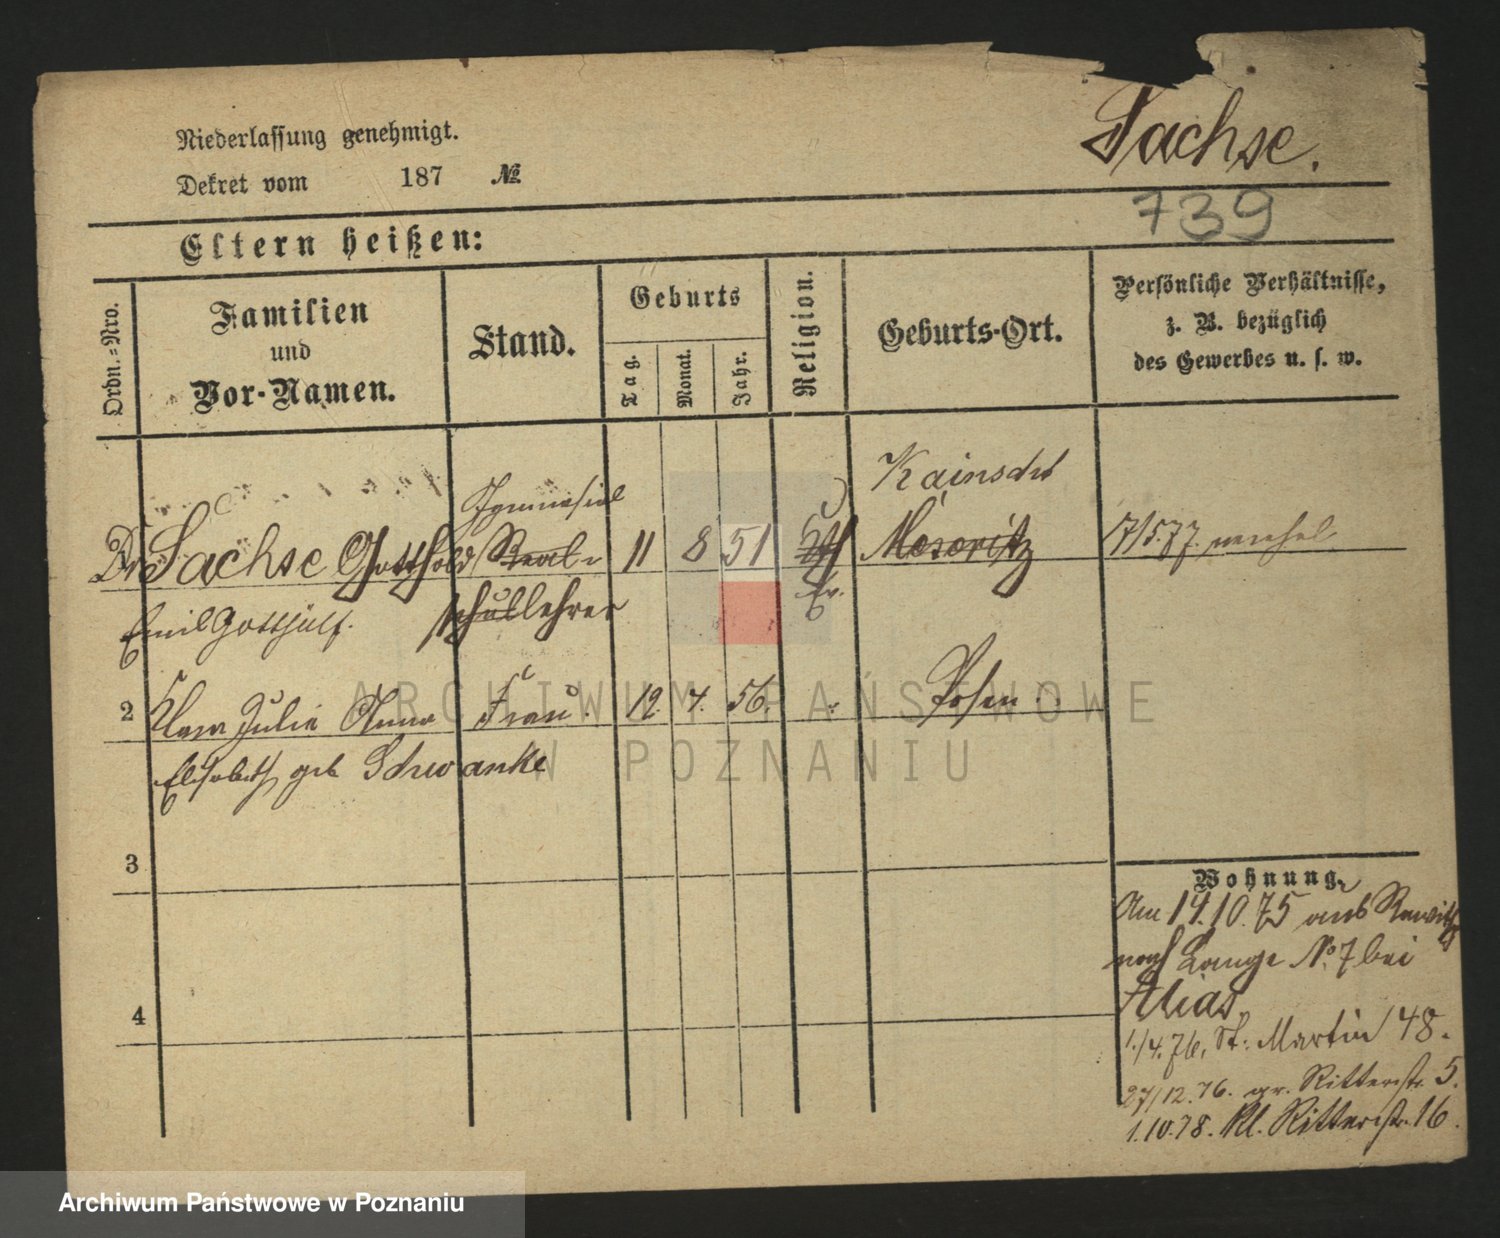 Niederlassung genehmigt.
Dekret vom 187 №
Sachse.
739
Eltern heißen:
Ordn.=Nro.
Familien
und
Vor-Namen.
Stand.
Geburts
Tag.
Monat.
Jahr.
Religion.
Geburts-Ort.
Persönliche Verhältnisse,
z. B. bezüglich
des Gewerbes u. s. w.
Gymnasial
Kainscht
Dr Sachse Gotthold Real- 11 8 51 Meseritz 7/5.77.
Emil Gotthilf. schullehrer Ev.
2 Klara Julie Anna Frau. 12. 4. 56. Posen.
Elisabeth geb Schwanke
3
4
Wohnung.
Am 14.10.75 aus Rawitz
nach Lange No. 7 bei
Alias
1./4.76. St. Martin 48.
27/12.76. gr. Ritterstr. 5.
1.10.78. Kl. Ritterstr. 16
ARCHIWUM PAŃSTWOWE
W POZNANIU
Archiwum Państwowe w Poznaniu